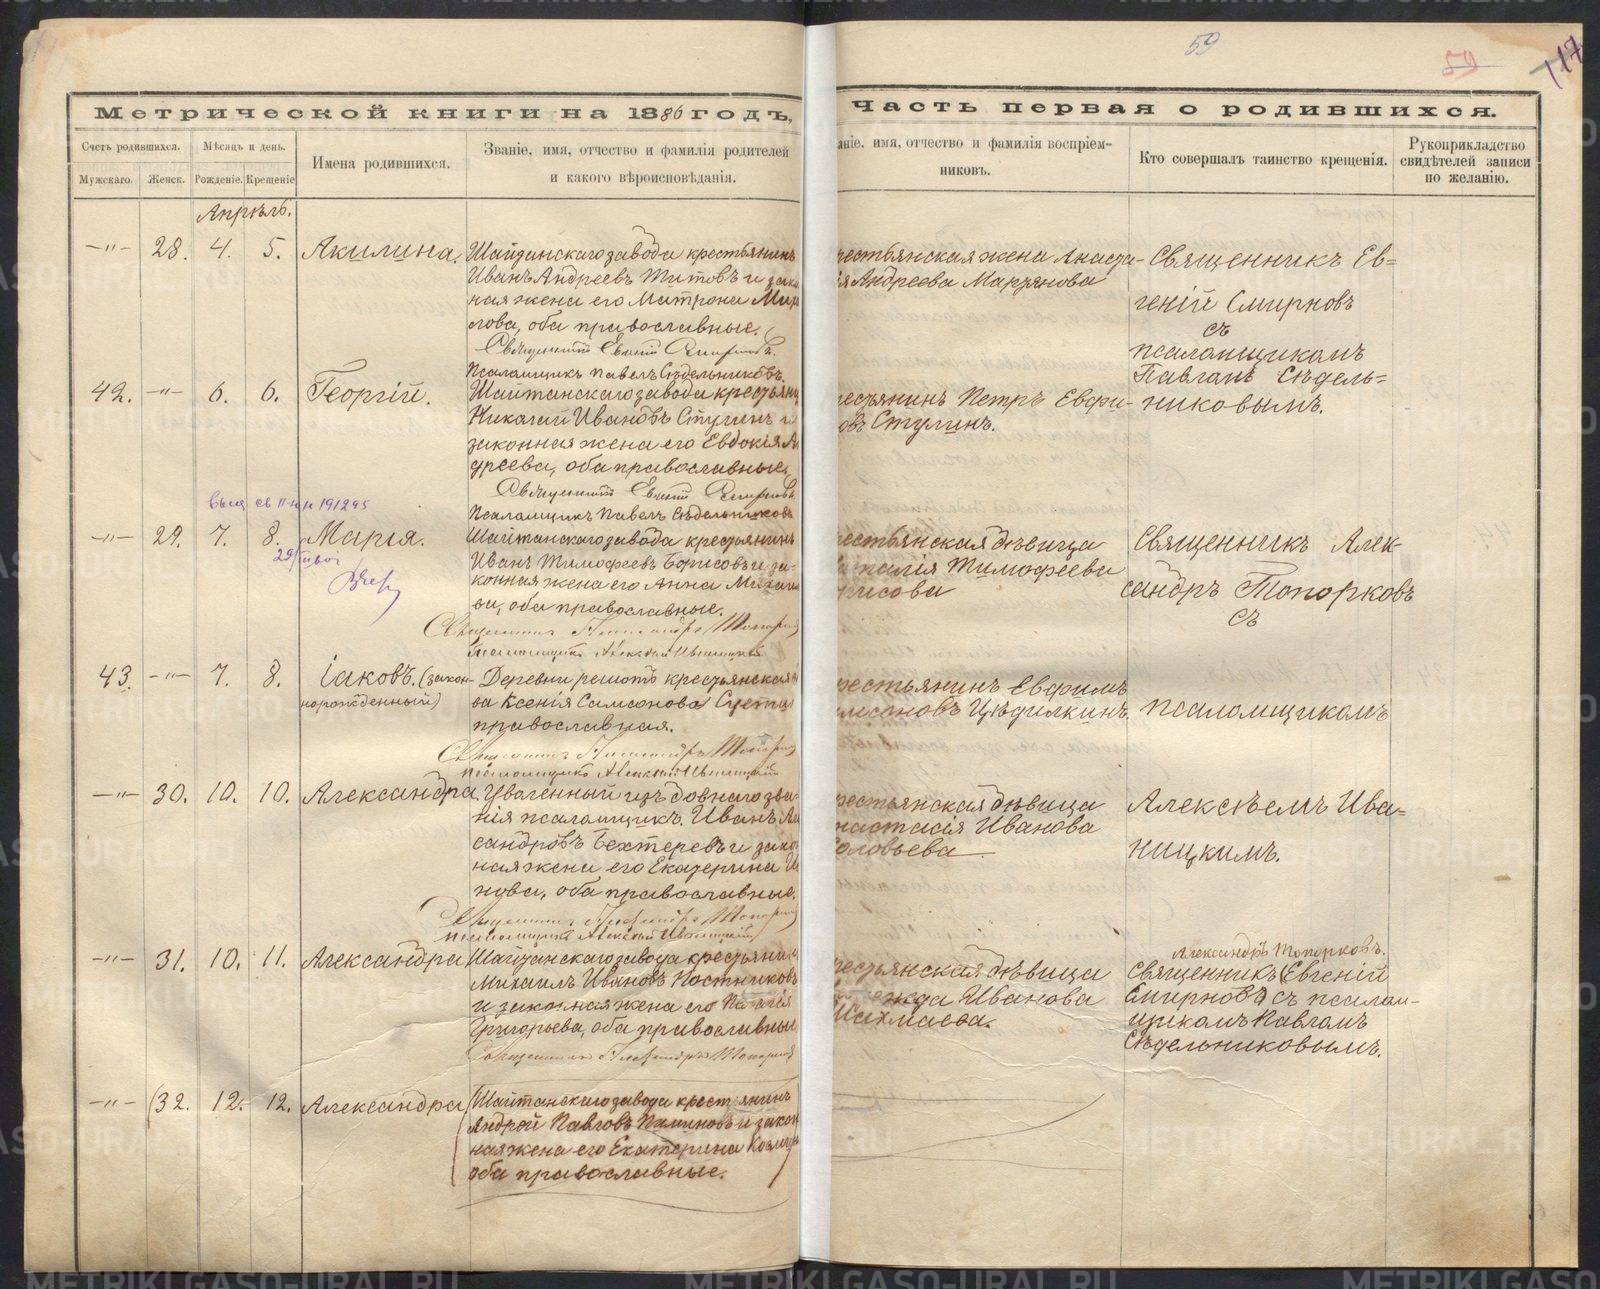 59
59
117
Метрической книги на 1886 годъ,
часть первая о родившихся.
Счетъ родившихся.
Мѣсяцъ и день.
Имена родившихся.
Званіе, имя, отчество и фамилія родителей
и какого вѣроисповѣданія.
аніе, имя, отчество и фамилія воспріем-
никовъ.
Кто совершалъ таинство крещенія.
Рукоприкладство
свидѣтелей записи
по желанію.
Мужскаго.
Женск.
Рожденіе.
Крещеніе
Апрѣль.
-"- 28. 4. 5. Акилина.
Шайтанскаго завода крестьянинъ
Иванъ Андреевъ Титовъ и зако
ная жена его Матрона Миха
лова, оба православные.
Священникъ Евгеній Смирновъ.
Псаломщикъ Павелъ Сѣдельниковъ.
рестьянская жена Анаста-
ія Андреева Марзянова
Священникъ Ев=
геній Смирновъ
съ
псаломщикомъ
Павломъ Сѣдель=
никовымъ.
42. -"- 6. 6. Георгій.
Шайтанскаго завода крестьяни
Ивановъ Стулинъ и
законная жена его Евдокія А
дреева, оба православные.
Священникъ Евгеній Смирновъ.
Псаломщикъ Павелъ Сѣдельниковъ
рестьянинъ Петръ Евфи-
овъ Стулинъ.
191245
-"- 29. 7. 8. Марія.
Шайтанскаго завода крестьянинъ
Иванъ Тимофеевъ Борисовъ и за-
конная жена его Анна Михаи
ва, оба православные.
Священникъ Александръ Топорков
Псаломщикъ Алексѣй Иваницкій
рестьянская дѣвица
талія Тимофеева
рисова
Священникъ Алек-
сандръ Топорковъ
съ
псаломщикомъ
Алексѣемъ Ива=
ницкимъ.
43. -"- 7. 8. Іаковъ. (закон-
норожденный)
Деревни крестьянская
ва Ксенія Самсонова
православная.
Священникъ Александръ Топорк
псаломщикъ Алексѣй Иваницкій
рестьянинъ Евфимъ
амсоновъ Цѣдилкинъ.
-"- 30. 10. 10. Александра.
Уволенный изъ довнаго зва-
нія псаломщикъ Иванъ Ал
сандровъ Бехтеревъ и зако
ная жена его Екатерина И
нова, оба православные.
Священникъ Александръ Топорков
псаломщикъ Алексѣй Иваницкій
рестьянская дѣвица
настасія Иванова
оловьева
-"- 31. 10. 11. Александра
Шайтанскаго завода крестьянин
Михаилъ Ивановъ Костниковъ
и законная жена его
Григорьева, оба православные
Священникъ Александръ Топорков
рестьянская дѣвица
Иванова
Шахмаева.
Александръ Топорковъ.
Священникъ (Евгеній
Смирновъ) съ псалом-
щикомъ Павломъ
Сѣдельниковымъ.
-"- (32. 12. 12. Александра
(Шайтанскаго завода крестьянинъ
Андрей Павловъ Пиминовъ и закон
ная жена его Екатерина Козмин
оба православные.